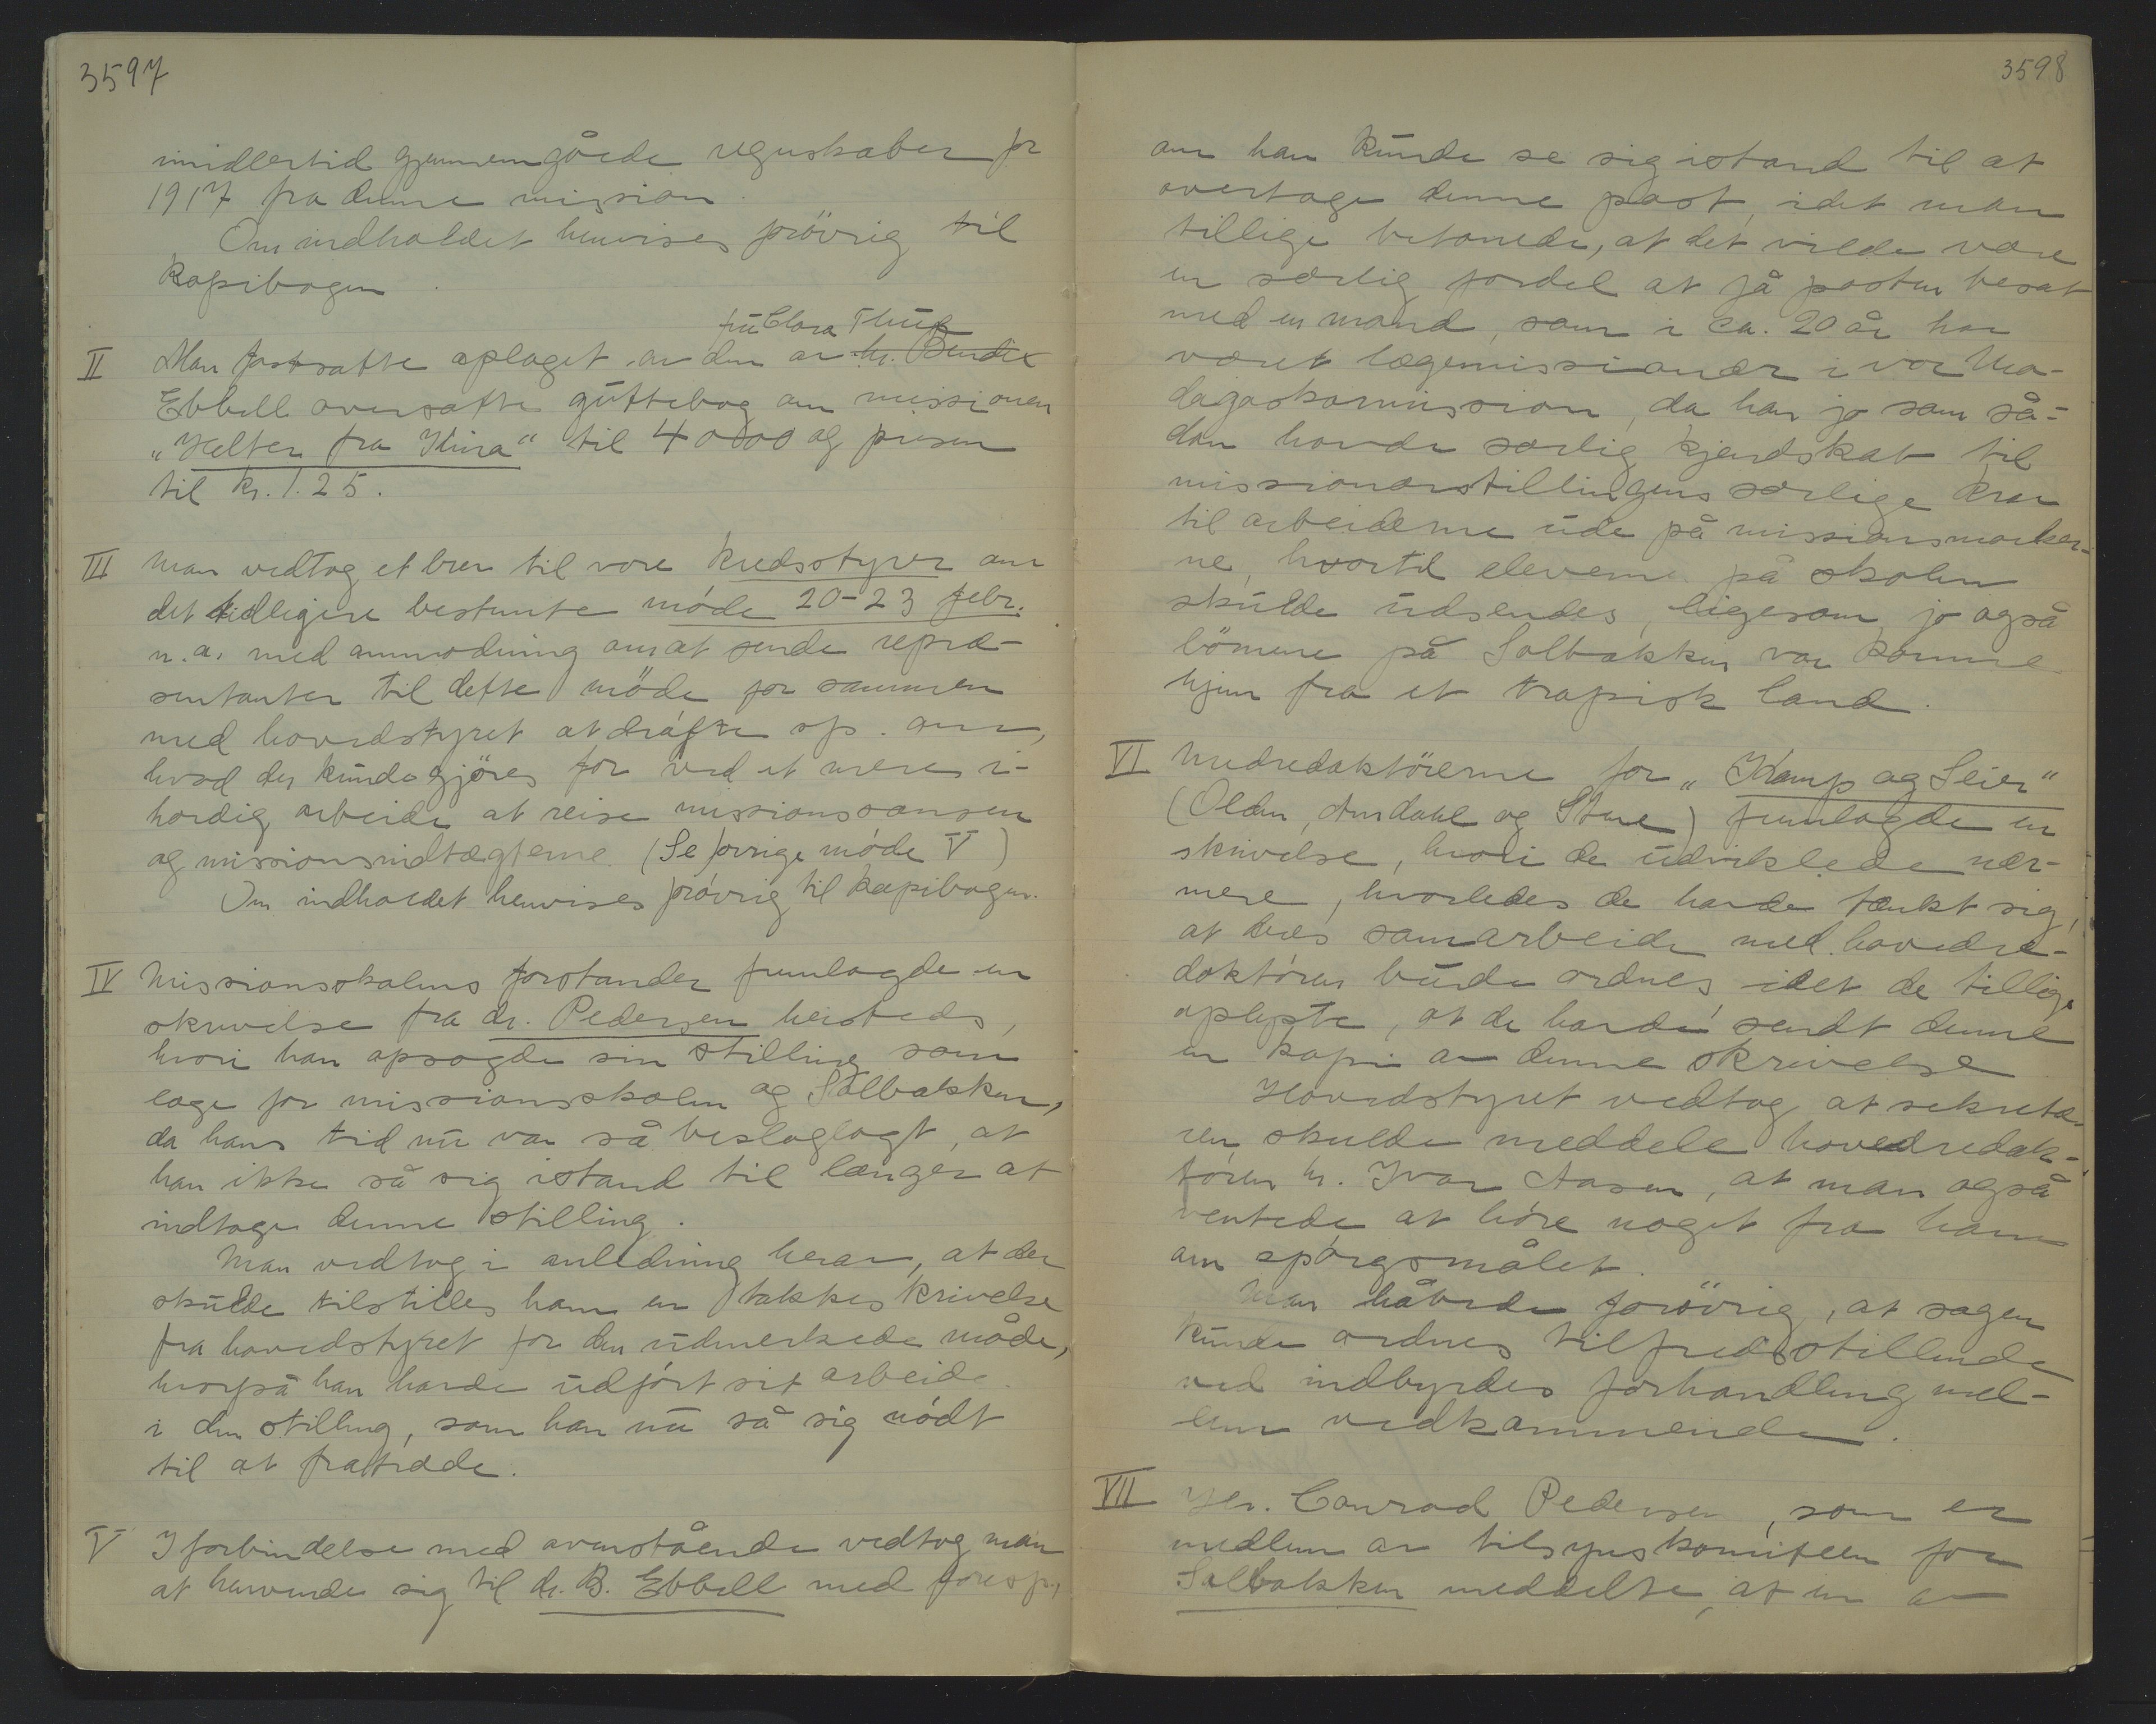 3597
imidlertid gjennemgåede regnskaber for
1917 fra denne mission.
Om indholdet henvises forövrig til
kopibogen.
II Man fastsatte oplaget av den av hr. Bendix
fru Clara Thue
Ebbell oversatte guttebog om missionen
„Helter fra Kina" til 4000 og prisen
til kr. 1.25.
III Man vedtog et brev til vore kredsstyrer om
det tidligere bestemte möde 20-23 febr.
n.a. med anmodning om at sende repræ-
sentanter til dette möde for sammen
med hovedstyret at dröfte sp. om,
hvad der kunde gjöres for ved et mere i-
hærdig arbeide at reise missionssansen
og missionsindtægterne. (Se forrige möde V)
Om indholdet henvises forövrig til kopibogen.
IV Missionsskolens forstander fremlagde en
skrivelse fra dr. Pedersen hersteds,
hvori han opsagde sin stilling som
læge for missionsskolen og Solbakken,
da hans tid nu var så beslaglagt, at
han ikke så sig istand til længer at
indtage denne stilling.
Man vedtog i anledning herav, at der
skulde tilstilles ham en takkeskrivelse
fra hovedstyret for den udmerkede måde,
hvorpå han havde udført sit arbeide
i den stilling, som han nu så sig nödt
til at fratræde.
V I forbindelse med ovenstående vedtog man
at henvende sig til dr. B. Ebbell med foresp.,
3598
om han kunde se sig istand til at
overtage denne post, idet man
tillige betonede, at det vilde være
en særlig fordel at få posten besat
med en mand, som i ca. 20 år har
været lægemissionær i vor Ma-
dagaskarmission, da han jo som så-
dan havde særlig kjendskab til
missionærstillingens særlige krav
til arbeiderne ude på missionsmarker-
ne, hvortil eleverne på skolen
skulde udsendes, ligesom jo også
börnene på Solbakken var komne
hjem fra et tropisk land.
VI Medredaktörerne for „Kamp og Seier"
(Olden, Amdahl og Stene) fremlagde en
skrivelse, hvori de udviklede nær-
mere, hvorledes de havde tænkt sig,
at deres samarbeide med hovedre-
daktören burde ordnes, idet de tillige
oplyste, at de havde sendt denne
en kopi av denne skrivelse
Hovedstyret vedtog at sekretæ-
ren skulde meddele hovedredak-
tören hr. Ivar Aasen, at man også
ventede at höre noget fra ham
om spörgsmålet.
Man håbede forövrig, at sagen
kunde ordnes tilfredsstillende
ved indbyrdes forhandling mel-
lem vedkommende.
VII Hr. Conrad Pedersen, som er
medlem av tilsynskomiteen for
Solbakken meddelte, at en av